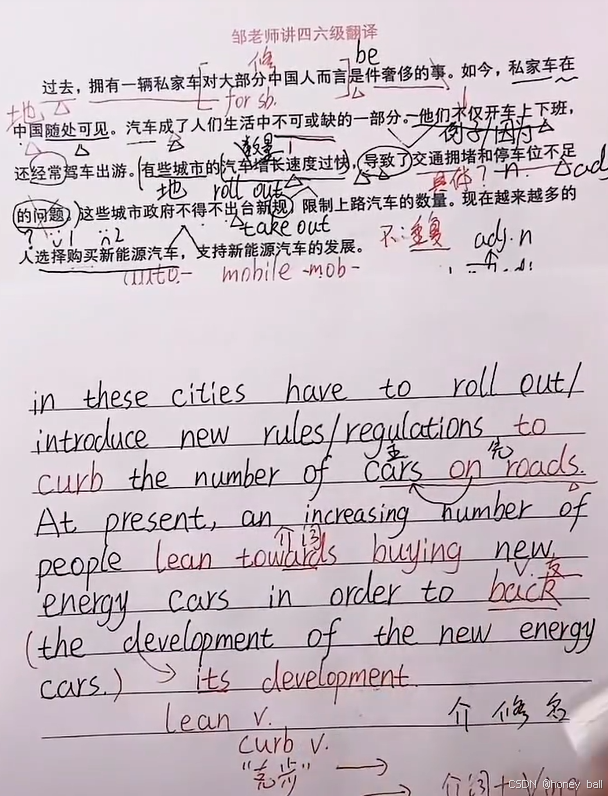 邹老师讲四六级翻译
修
be
过去，拥有一辆私家车[对大部分中国人而言]是件奢侈的事。如今，私家车在
地
for sb.
中国随处可见。汽车成了人们生活中不可或缺的一部分。他们不仅开车上下班，
数量
例子/因为
还经常驾车出游。(有些城市的汽车增长速度过快，导致了交通拥堵和停车位不足
地
roll out
具体?
n.
adj
的问题。)这些城市政府不得不出台新规，限制上路汽车的数量。现在越来越多的
? v1 n2
take out
不:重复
adj. n
人选择购买新能源汽车，支持新能源汽车的发展。
auto-
mobile -mob-
in these cities have to roll out/
introduce new rules/regulations to
主
完
curb the number of cars on roads.
At present, an increasing number of
介词
people lean towards buying new
energy cars in order to back
(the development of the new energy
cars.) its development
lean v.
介 修 名
curb v.
介词+Ving
CSDN @honey ball